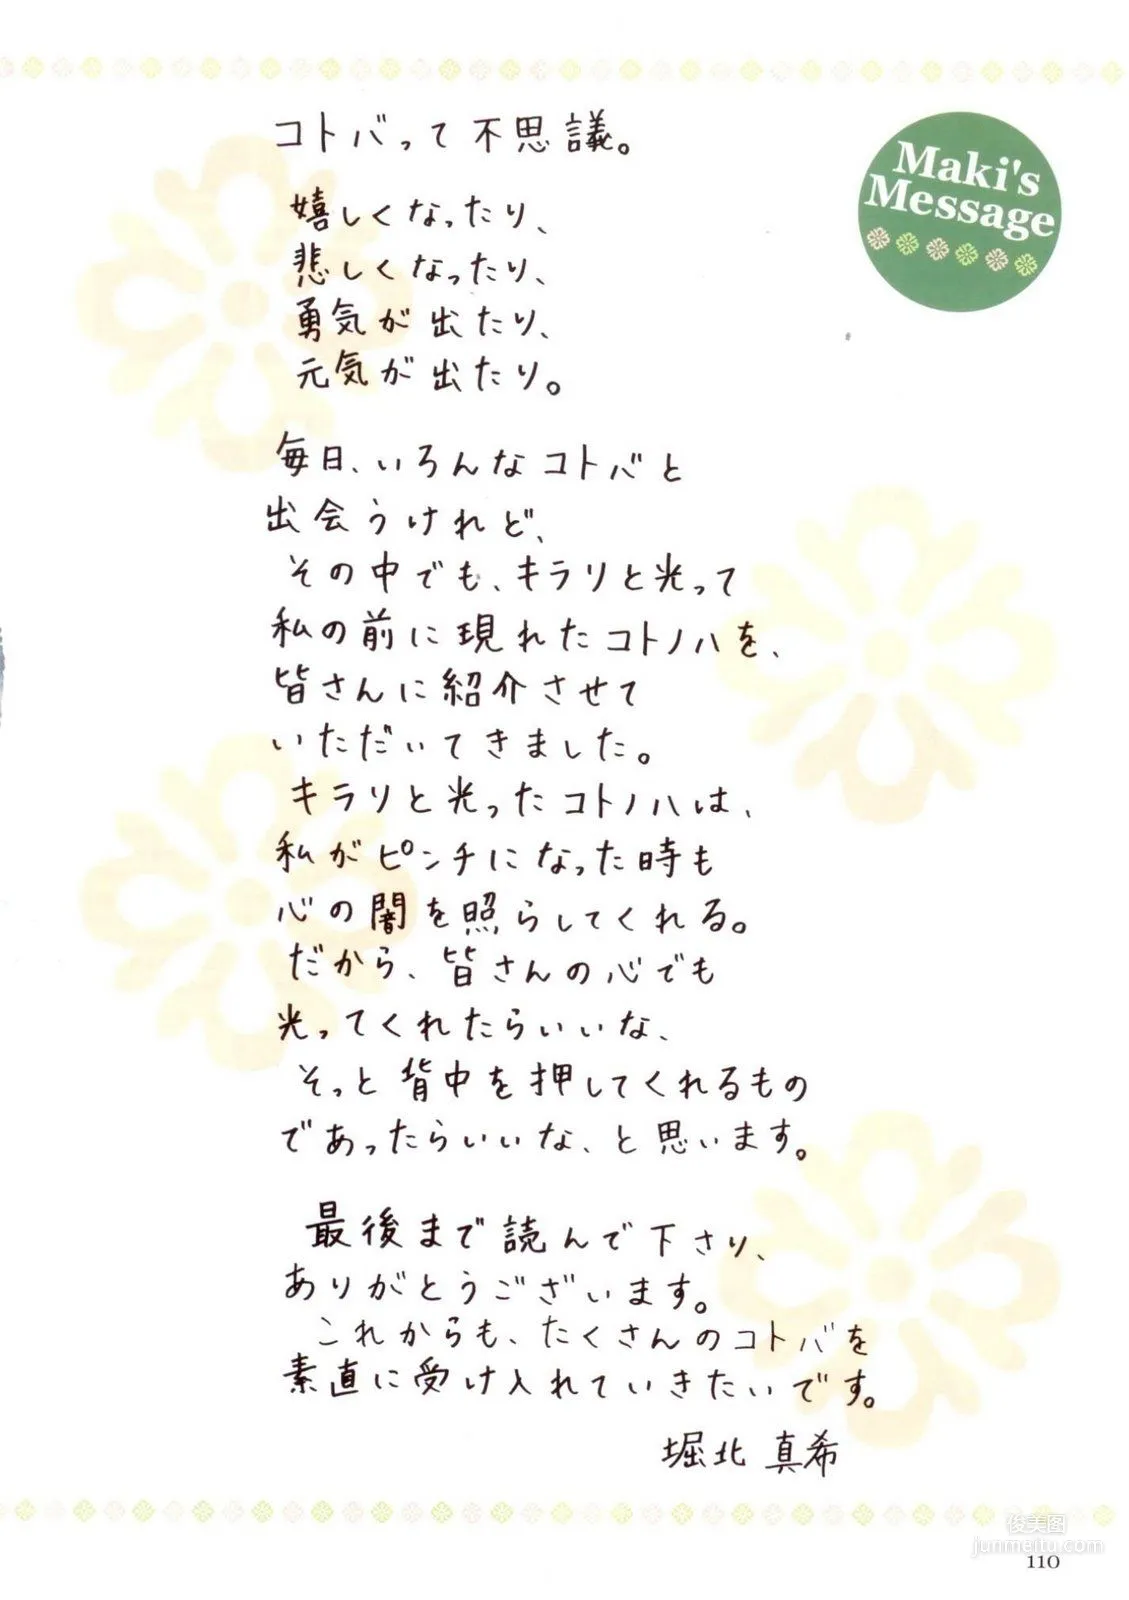 コトバって不思議。
Maki's
Message
嬉しくなったり、
悲しくなったり、
勇気が出たり、
元気が出たり。
毎日、いろんなコトバと
出会うけれど、
その中でも、キラリと光って
私の前に現れたコトノハを、
皆さんに紹介させて
いただいてきました。
キラリと光ったコトノハは、
私がピンチになった時も
心の闇を照らしてくれる。
だから、皆さんの心でも
光ってくれたらいいな、
そっと背中を押してくれるもの
であったらいいな、と思います。
最後まで読んで下さり、
ありがとうございます。
これからも、たくさんのコトバを
素直に受け入れていきたいです。
堀北 真希
俊美图
junmeitu.com
110